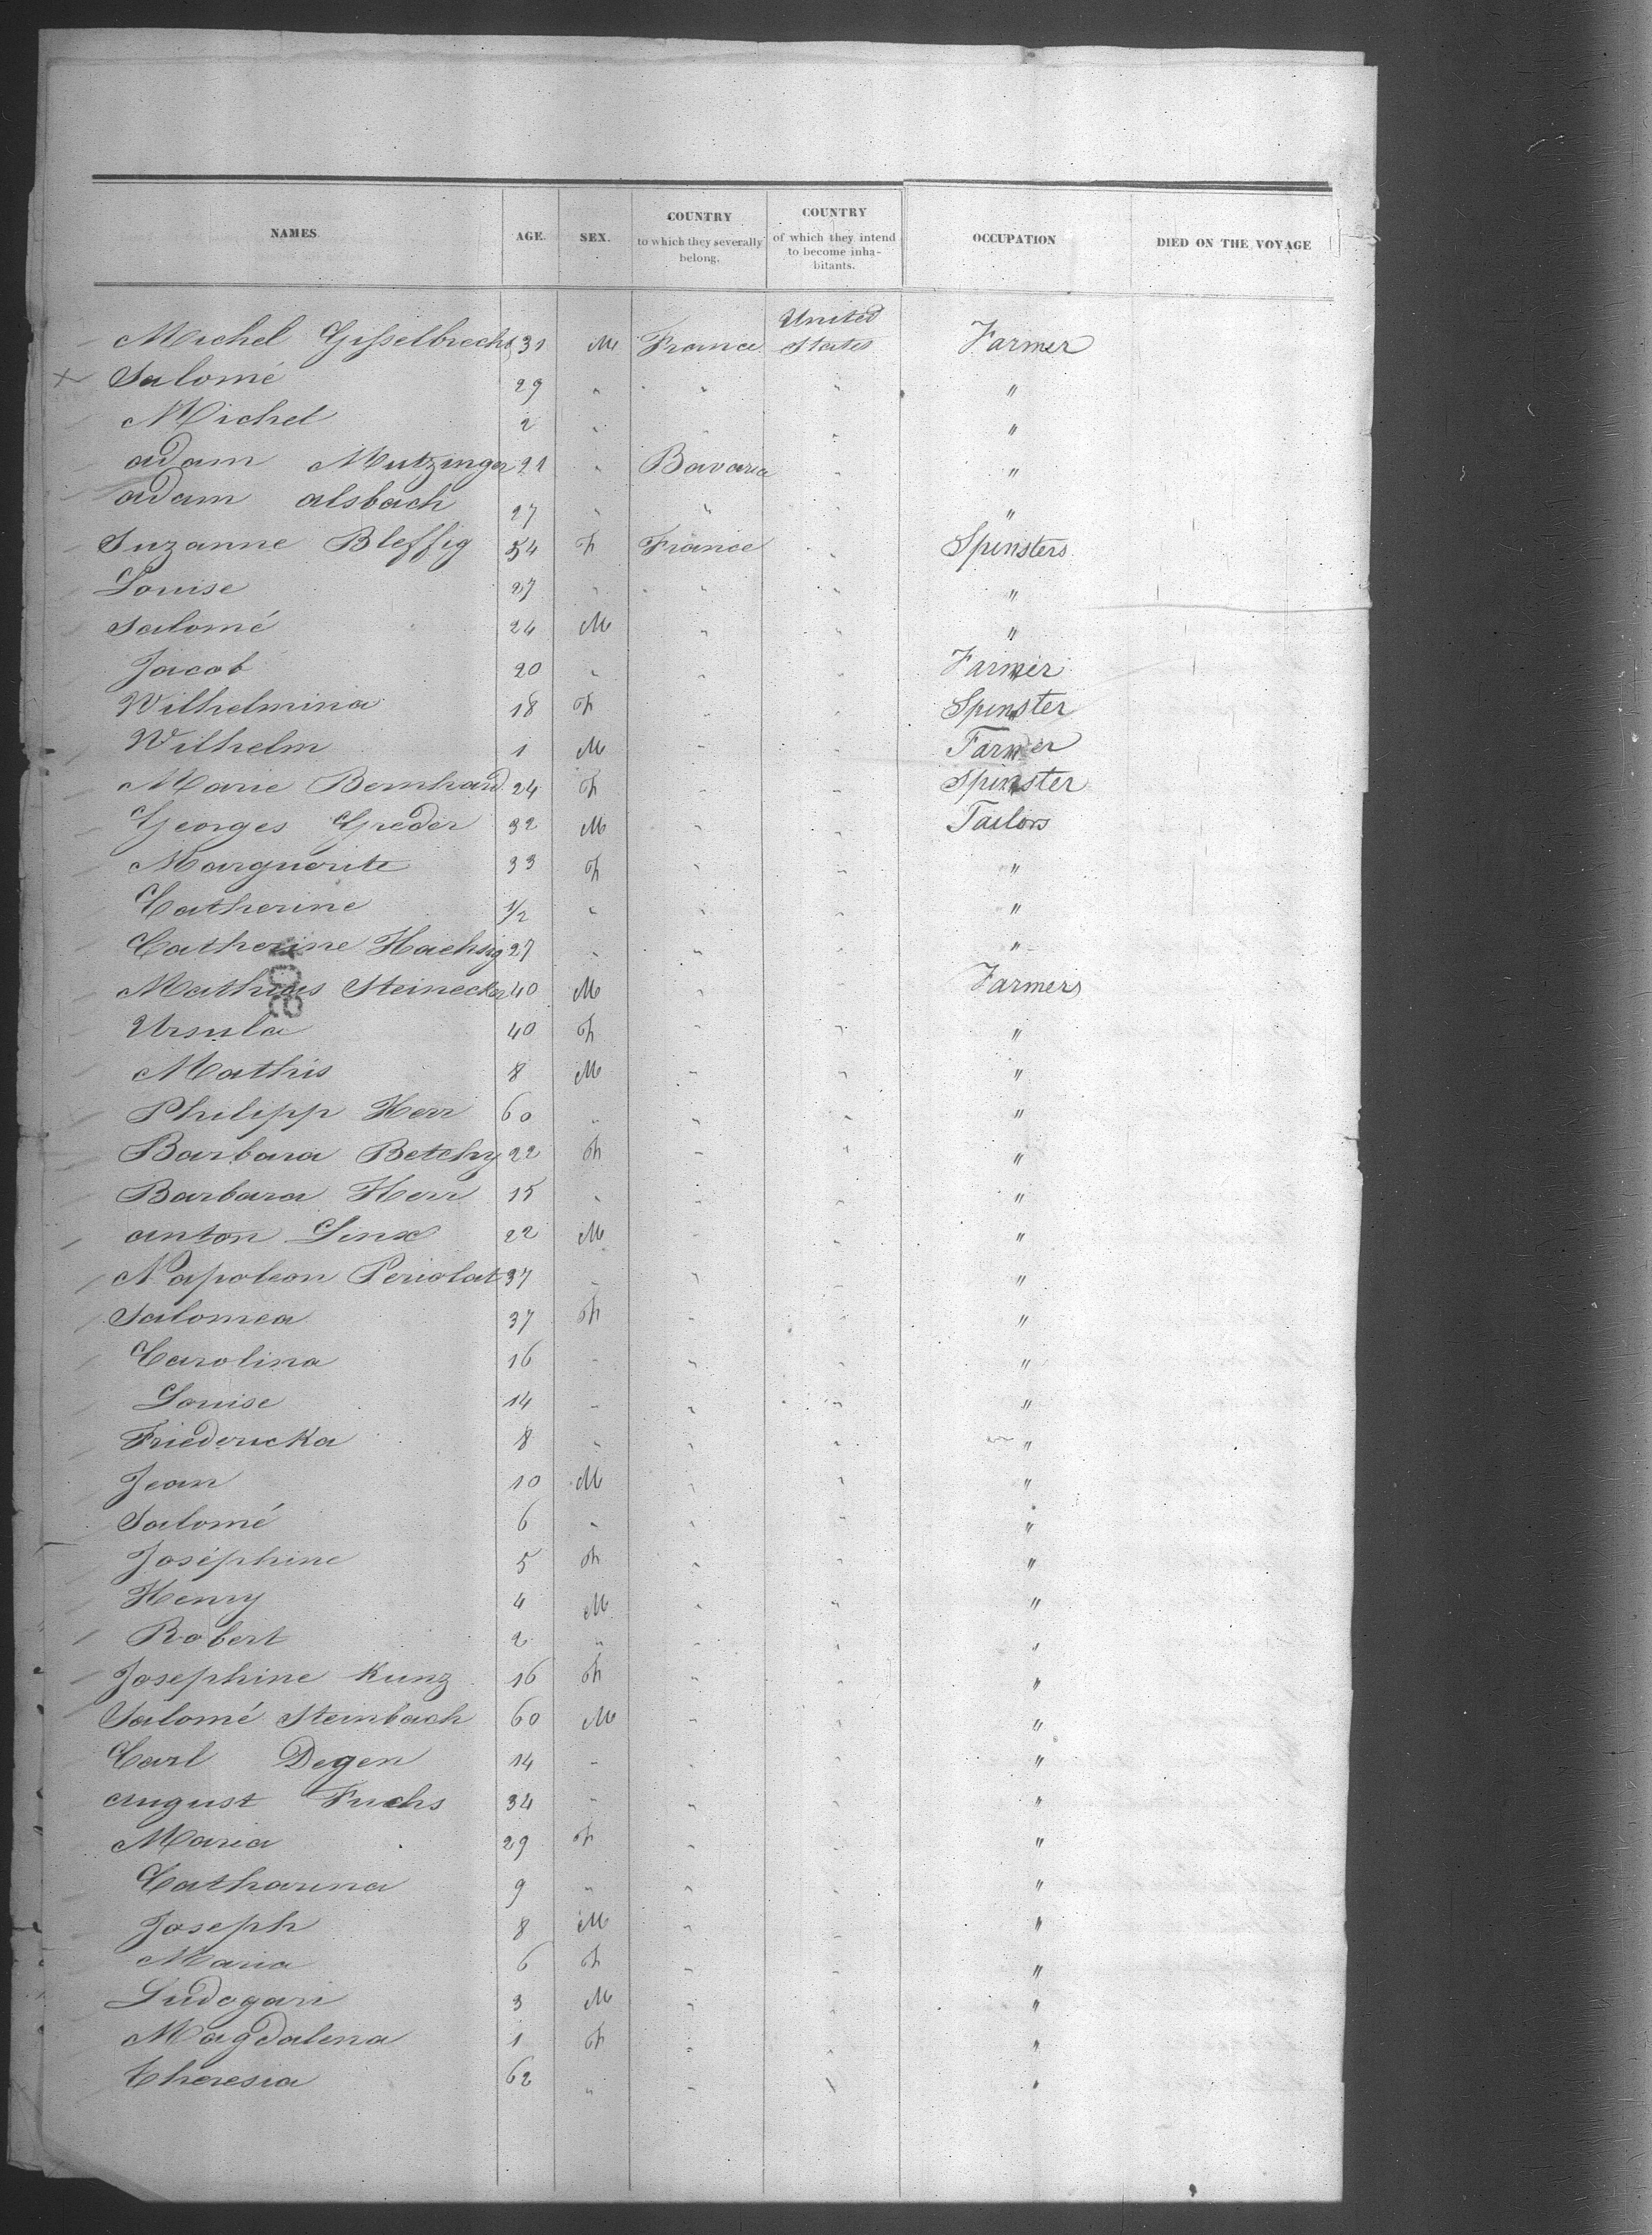 NAMES. AGE. SEX. COUNTRY to which they severally belong. COUNTRY of which they intend to become inhabitants. OCCUPATION DIED ON THE VOYAGE
United
Michel Gisselbrecht 31 M France States Farmer
Salomé 29 " " " "
Michel 2 " " " "
Adam Mutzinger 21 " Bavaria " "
Adam Alsbach 27 " " " "
Suzanne Bleffig 54 F France " Spinsters
Louise 27 " " " "
Salomé 24 M " " "
Jacob 20 " " " Farmer
Wilhelmina 18 F " " Spinster
Wilhelm 1 M " " Farmer
Marie Bernhard 24 F " " Spinster
Georges Greder 32 M " " Tailors
Marguerite 33 F " " "
Catherine 1/2 " " " "
Catherine Haehsig 27 " " " "
Mathias Steinecker 40 M " " Farmers
Ursula 40 F " " "
Mathis 8 M " " "
Philipp Herr 60 " " " "
Barbara Betchy 22 F " " "
Barbara Herr 15 " " " "
Anton Linx 22 M " " "
Napoleon Periolat 37 " " " "
Salomea 37 F " " "
Carolina 16 " " " "
Louise 14 " " " "
Friedericka 8 " " " "
Jean 10 M " " "
Salomé 6 " " " "
Joséphine 5 F " " "
Henry 4 M " " "
Robert 2 " " " "
Josephine Kunz 16 F " " "
Salomé Steinbach 60 M " " "
Carl Degen 14 " " " "
August Fuchs 34 " " " "
Maria 29 F " " "
Catharina 9 " " " "
Joseph 8 M " " "
Maria 6 F " " "
Ludogari 3 M " " "
Magdalena 1 F " " "
Theresia 62 " " " "